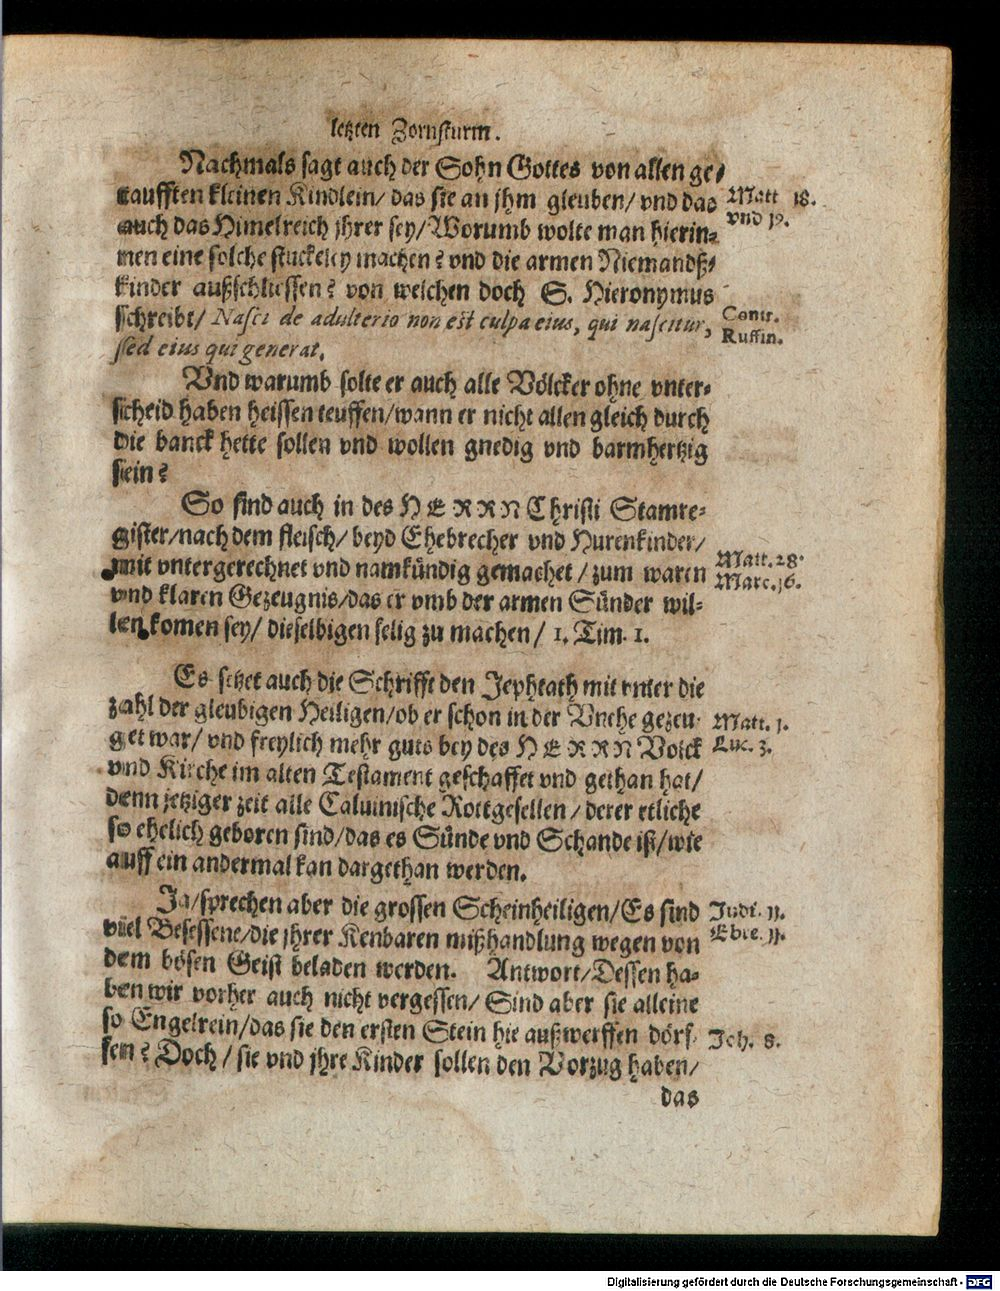 letzten Zornsturm.
Nachmals sagt auch der Sohn Gottes von allen ge-
taufften kleinen Kindlein/ das sie an jhm gleuben/ vnd das
auch das Himelreich jhrer sey/ Worumb wolte man hierin-
nen eine solche stuckeley machen? vnd die armen Niemandß-
kinder außschliessen? von welchen doch S. Hieronymus
schreibt/ Nasci de adulterio non est culpa eius, qui nascitur,
sed eius qui generat.
Matt 18.
vnd 19.
Contr.
Ruffin.
Vnd warumb solte er auch alle Völcker ohne vnter-
scheid haben heissen teuffen/ wann er nicht allen gleich durch
die banck hette sollen vnd wollen gnedig vnd barmhertzig
sein?
So sind auch in des HERRN Christi Stamre-
gister/ nach dem fleisch/ beyd Ehebrecher vnd Hurenkinder/
mit vntergerechnet vnd namkündig gemachet/ zum waren
vnd klaren Gezeugnis/ das er vmb der armen Sünder wil-
len komen sey/ dieselbigen selig zu machen/ 1. Tim. 1.
Matt. 28.
Marc. 16.
Es setzet auch die Schrifft den Jephtath mit vnter die
zahl der gleubigen Heiligen/ ob er schon in der Vnehe gezeu-
get war/ vnd freylich mehr guts bey des HERRN Volck
vnd Kirche im alten Testament geschaffet vnd gethan hat/
denn jetziger zeit alle Caluinische Rottgesellen/ derer etliche
so ehelich geboren sind/ das es Sünde vnd Schande ist/ wie
auff ein andermal kan dargethan werden.
Matt. 1.
Luc. 3.
Ja/ sprechen aber die grossen Scheinheiligen/ Es sind
viel Besessene/ die jhrer Kenbaren mißhandlung wegen von
dem bösen Geist beladen werden. Antwort/ Dessen ha-
ben wir vorher auch nicht vergessen/ Sind aber sie alleine
so Engelrein/ das sie den ersten Stein hie außwerffen dörf-
fen? Doch/ sie vnd jhre Kinder sollen den Vorzug haben/
Judi. 11.
Ebre. 11.
Joh. 8.
das
Digitalisierung gefördert durch die Deutsche Forschungsgemeinschaft - DFG